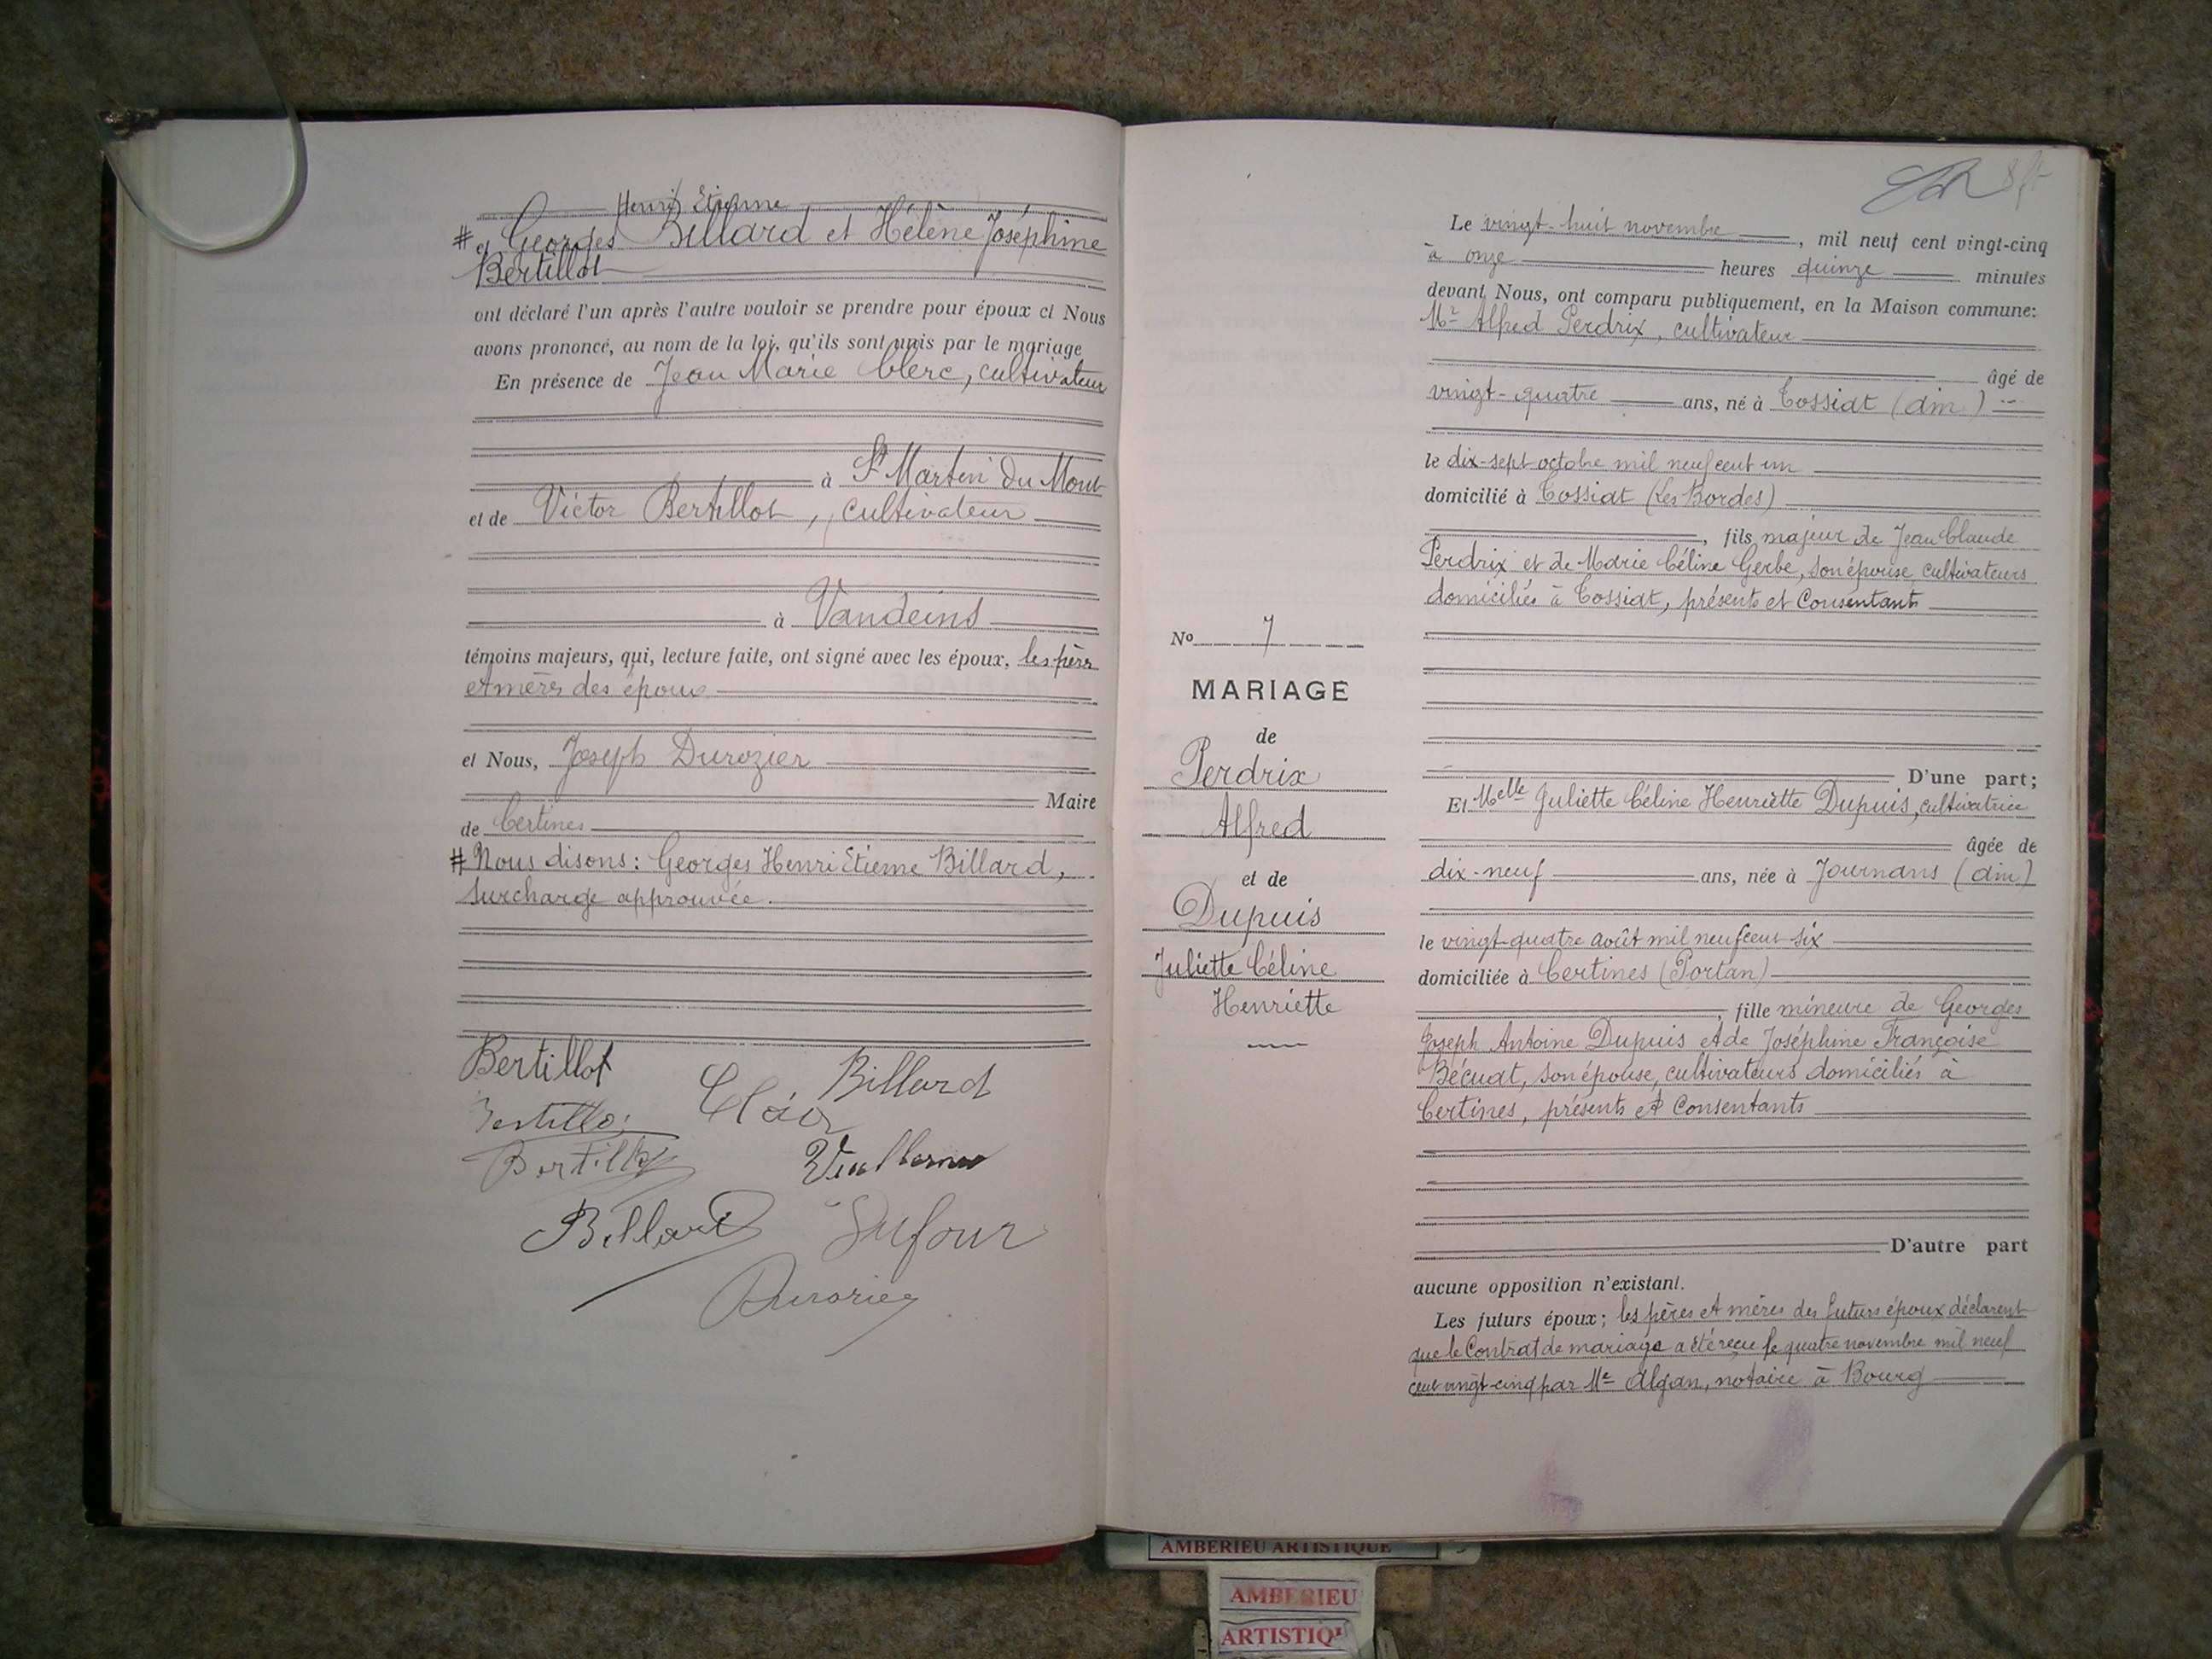 Henri Etienne
# et Georges Billard et Hélène Joséphine
Bertillot
ont déclaré l'un après l'autre vouloir se prendre pour époux et Nous
avons prononcé, au nom de la loi, qu'ils sont unis par le mariage
En présence de Jean Marie Clerc, cultivateur
à St Martin du Mont
et de Victor Bertillot, cultivateur
à Vandeins
témoins majeurs, qui, lecture faite, ont signé avec les époux, les pères
et mères des époux
et Nous, Joseph Durozier
Maire
de Certines
# Nous disons : Georges Henri Etienne Billard,
surcharge approuvée.
Bertillot
Billard
Bertillot
Billard
Dufour
Durozier
Le vingt-huit novembre, mil neuf cent vingt-cinq
à onze heures quinze minutes
devant Nous, ont comparu publiquement, en la Maison commune:
Mr Alfred Perdrix, cultivateur
âgé de
vingt-quatre ans, né à Tossiat (Ain)
le dix-sept octobre mil neuf cent un
domicilié à Tossiat (Les Bordes)
, fils majeur de Jean Claude
Perdrix et de Marie Céline Gerbe, son épouse cultivateurs
domiciliés à Tossiat, présents et Consentants
No 7
MARIAGE
de
Perdrix
Alfred
et de
Dupuis
Juliette Céline
Henriette
D'une part;
Et Melle Juliette Céline Henriette Dupuis, cultivatrice
âgée de
dix-neuf ans, née à Journans (Ain)
le vingt-quatre août mil neuf cent six
domiciliée à Certines (Portan)
, fille mineure de Georges
Joseph Antoine Dupuis et de Joséphine Françoise
Bécuat, son épouse, cultivateurs domiciliés à
Certines, présents et Consentants
D'autre part
aucune opposition n'existant.
Les futurs époux; les pères et mères des futurs époux déclarent
que le Contrat de mariage a été reçu le quatre novembre mil neuf
cent vingt-cinq par Me Algan, notaire à Bourg
AMBERIEU ARTISTIQUE
AMBERIEU
ARTISTIQU